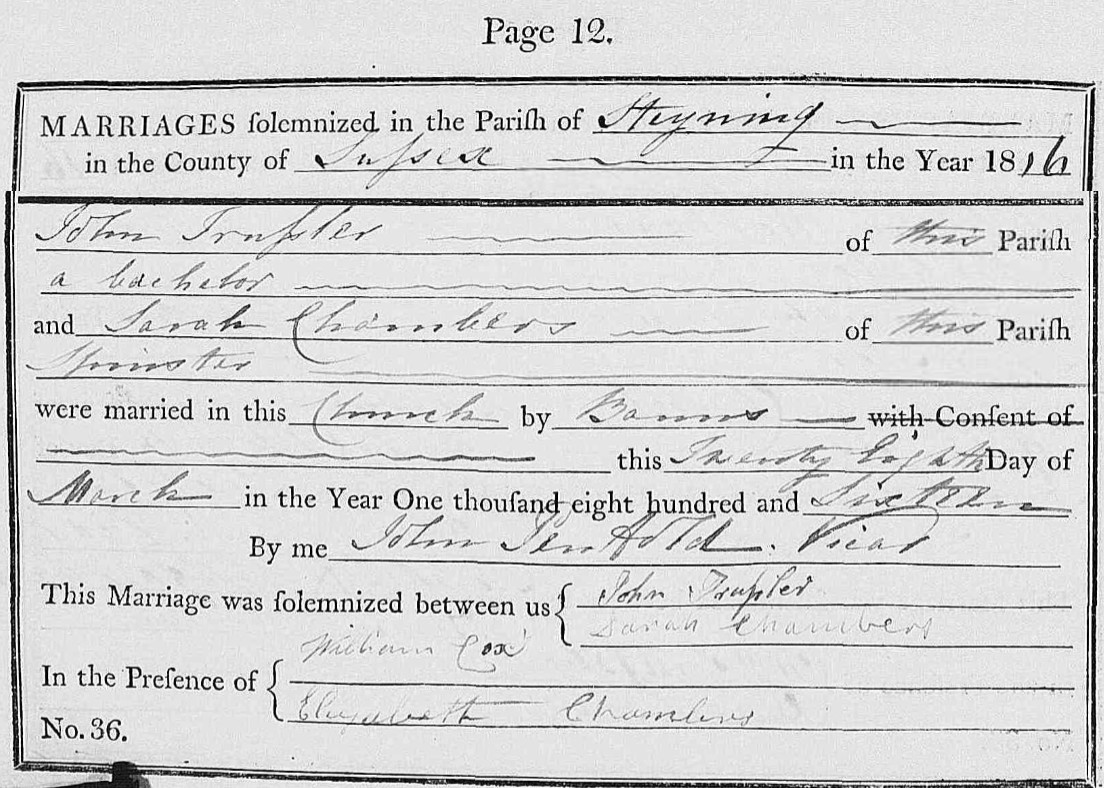 Page 12.
MARRIAGES ſolemnized in the Pariſh of Steyning
in the County of Suſsex in the Year 1816
John Truſsler of this Pariſh
a bachelor
and Sarah Chambers of this Pariſh
Spinster
were married in this Church by Banns with Conſent of
this Twenty Eighth Day of
March in the Year One thouſand eight hundred and Sixteen
By me John Penfold. Vicar
This Marriage was ſolemnized between us { John Truſsler
Sarah Chambers
William Cox
In the Preſence of {
Elizabeth Chambers
No. 36.